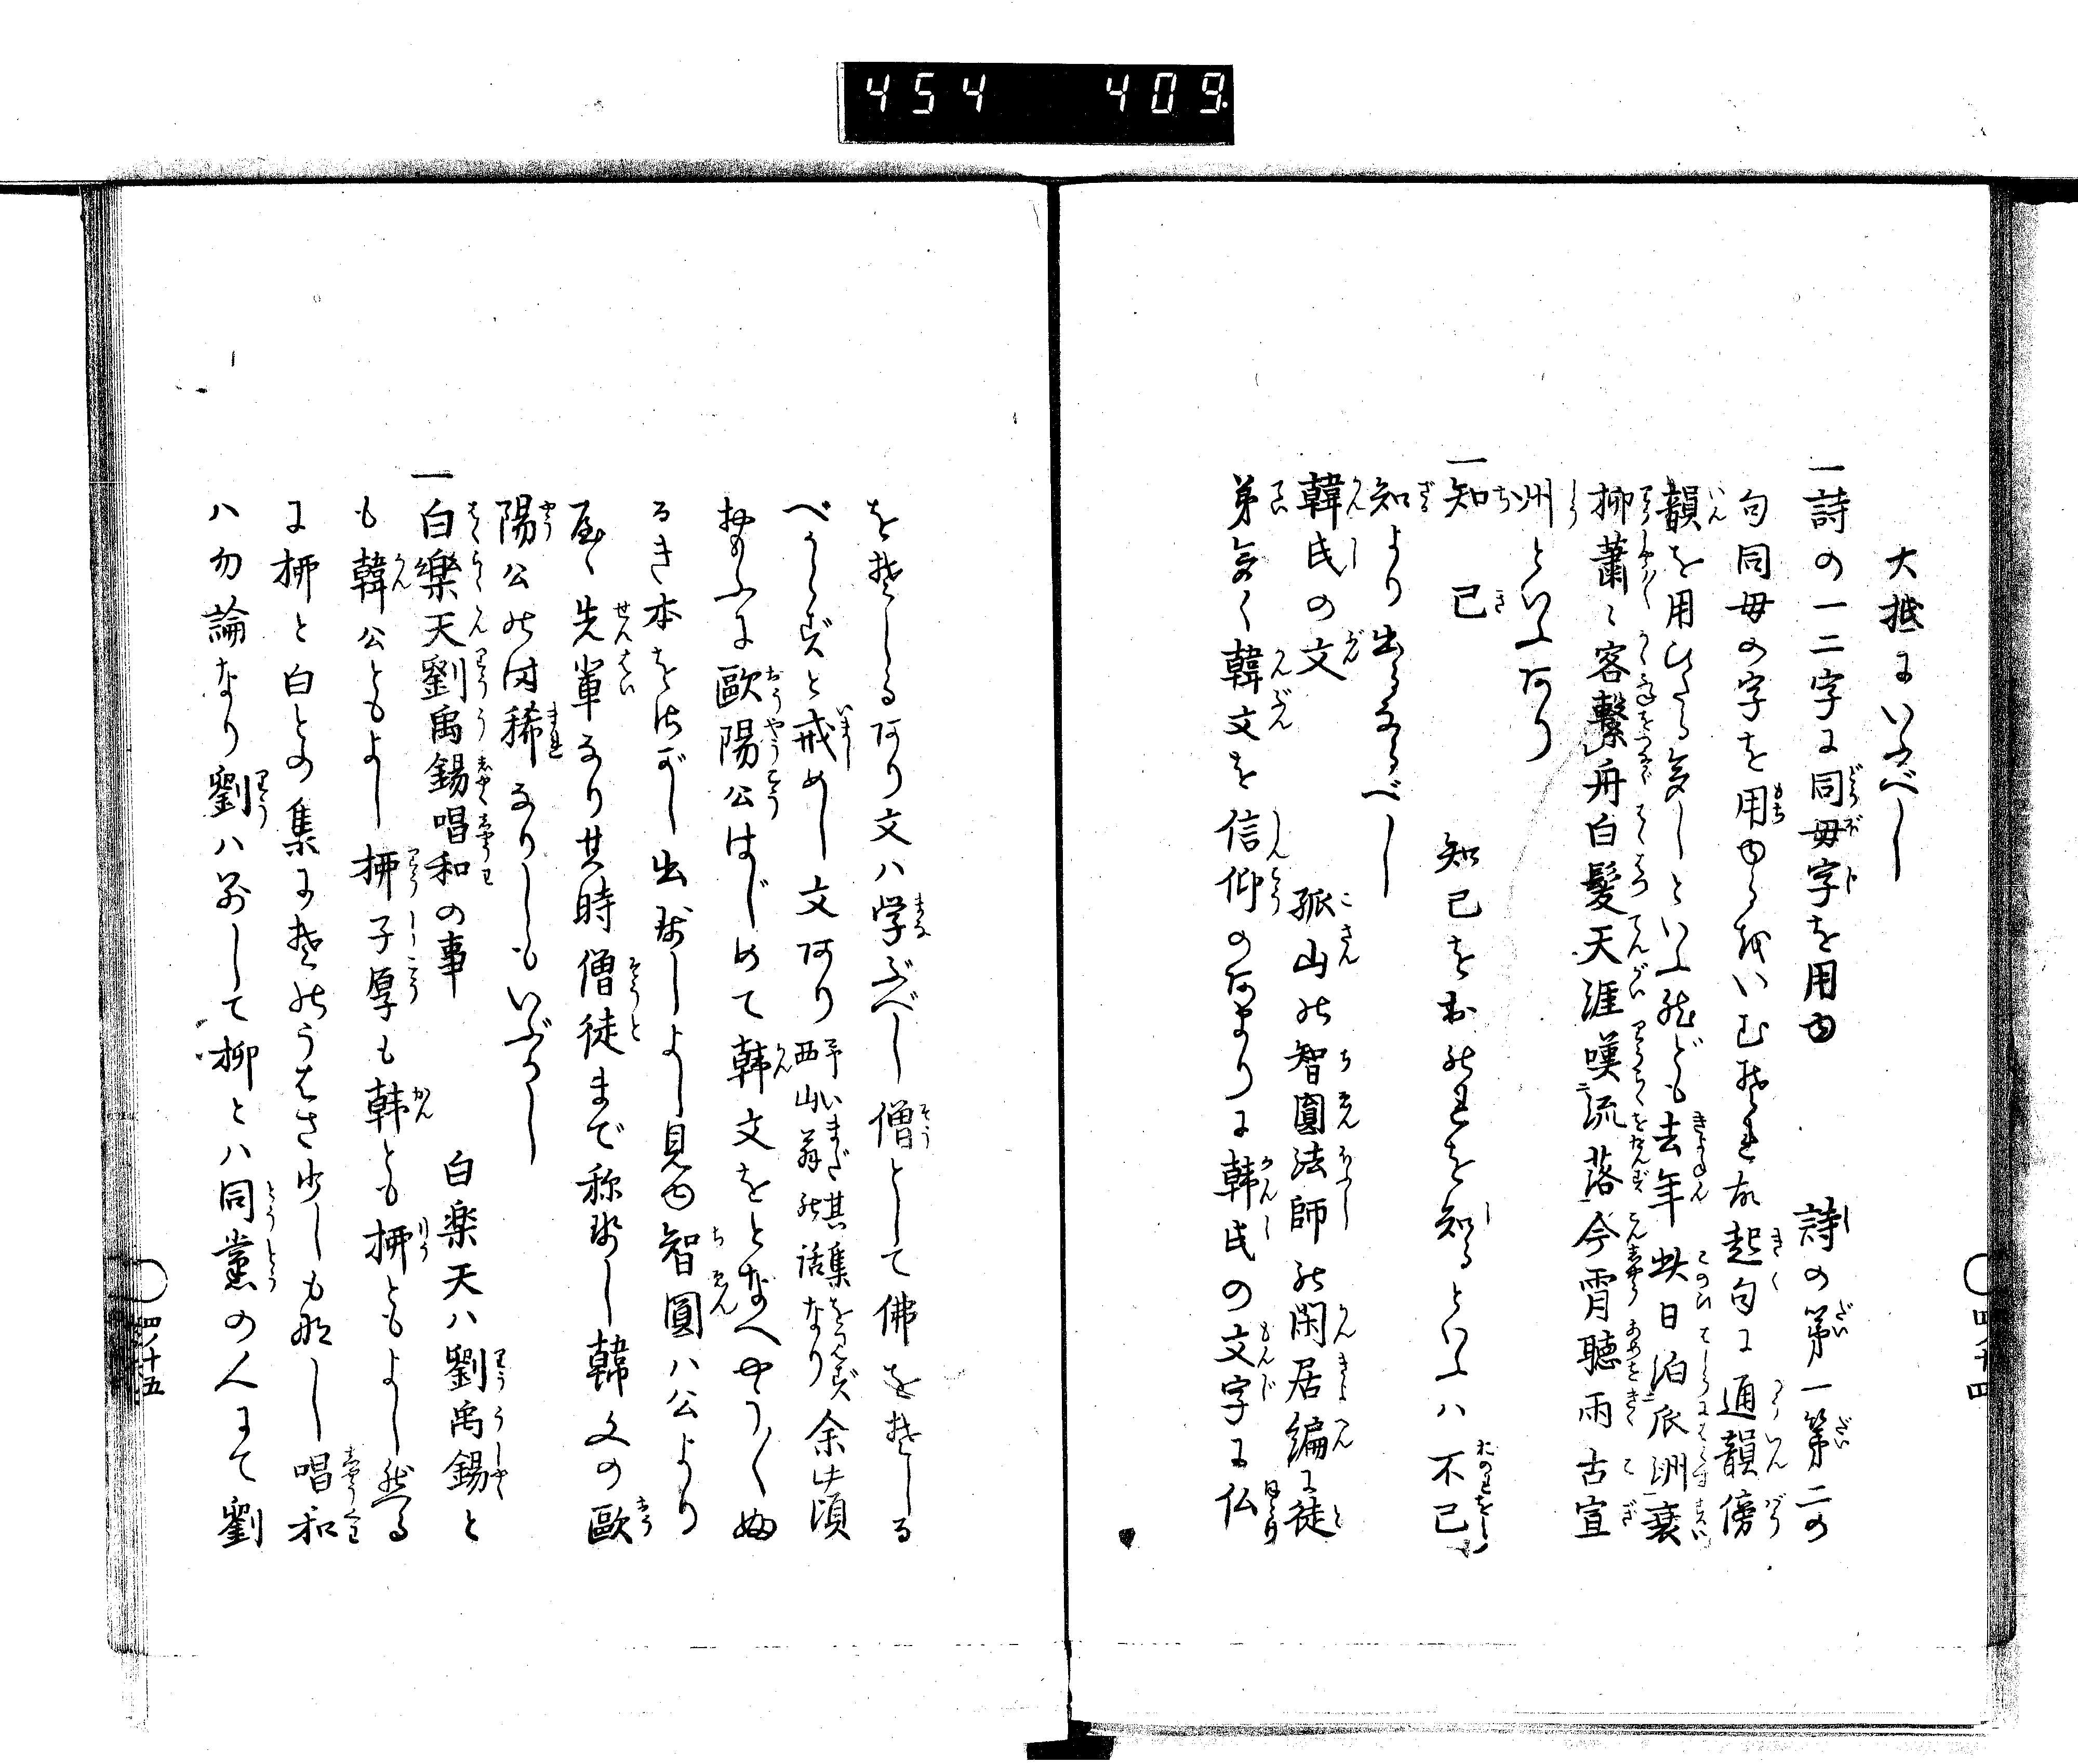 454 409
大抵にいふべし
一詩の一二字に同毋字を用ゆ 詩の第一第二の
句同毋の字を用ゆるをいむされ起句に通韻傍
韻を用ひたる多しといふ然ども去年此日泊瓜洲衰
柳蕭々客繫舟白髪天涯嘆流落今宵聴雨古宣
州といふあり
一知己 知己をおのれを知るといふハ不己
知より出るなるべし
韓氏の文 孤山の智圓法師の閑居編に徒
弟多く韓文を信仰のあまりに韓氏の文字に仏
四ノ十四
をそしるあり文ハ学ぶべし僧として佛をそしる
べからずと戒めし文あり予いまだ其集をみず余此頃
西山翁の話なり
おもふに歐陽公はじめて韓文をとなへやう〱
るき本をさがし出されしよし見ゆ智圓ハ公より
先輩なり其時僧徒まで称されし韓文の歐
陽公の時稀なりしもいぶかし
一白樂天劉禹錫唱和の事 白楽天ハ劉禹錫と
も韓公ともよし栁子厚も韓とも栁ともよし然る
に栁と白との集にそのうはさ少しも那し唱和
ハ勿論なり劉ハ若して柳とハ同黨の人にて劉
四ノ十五